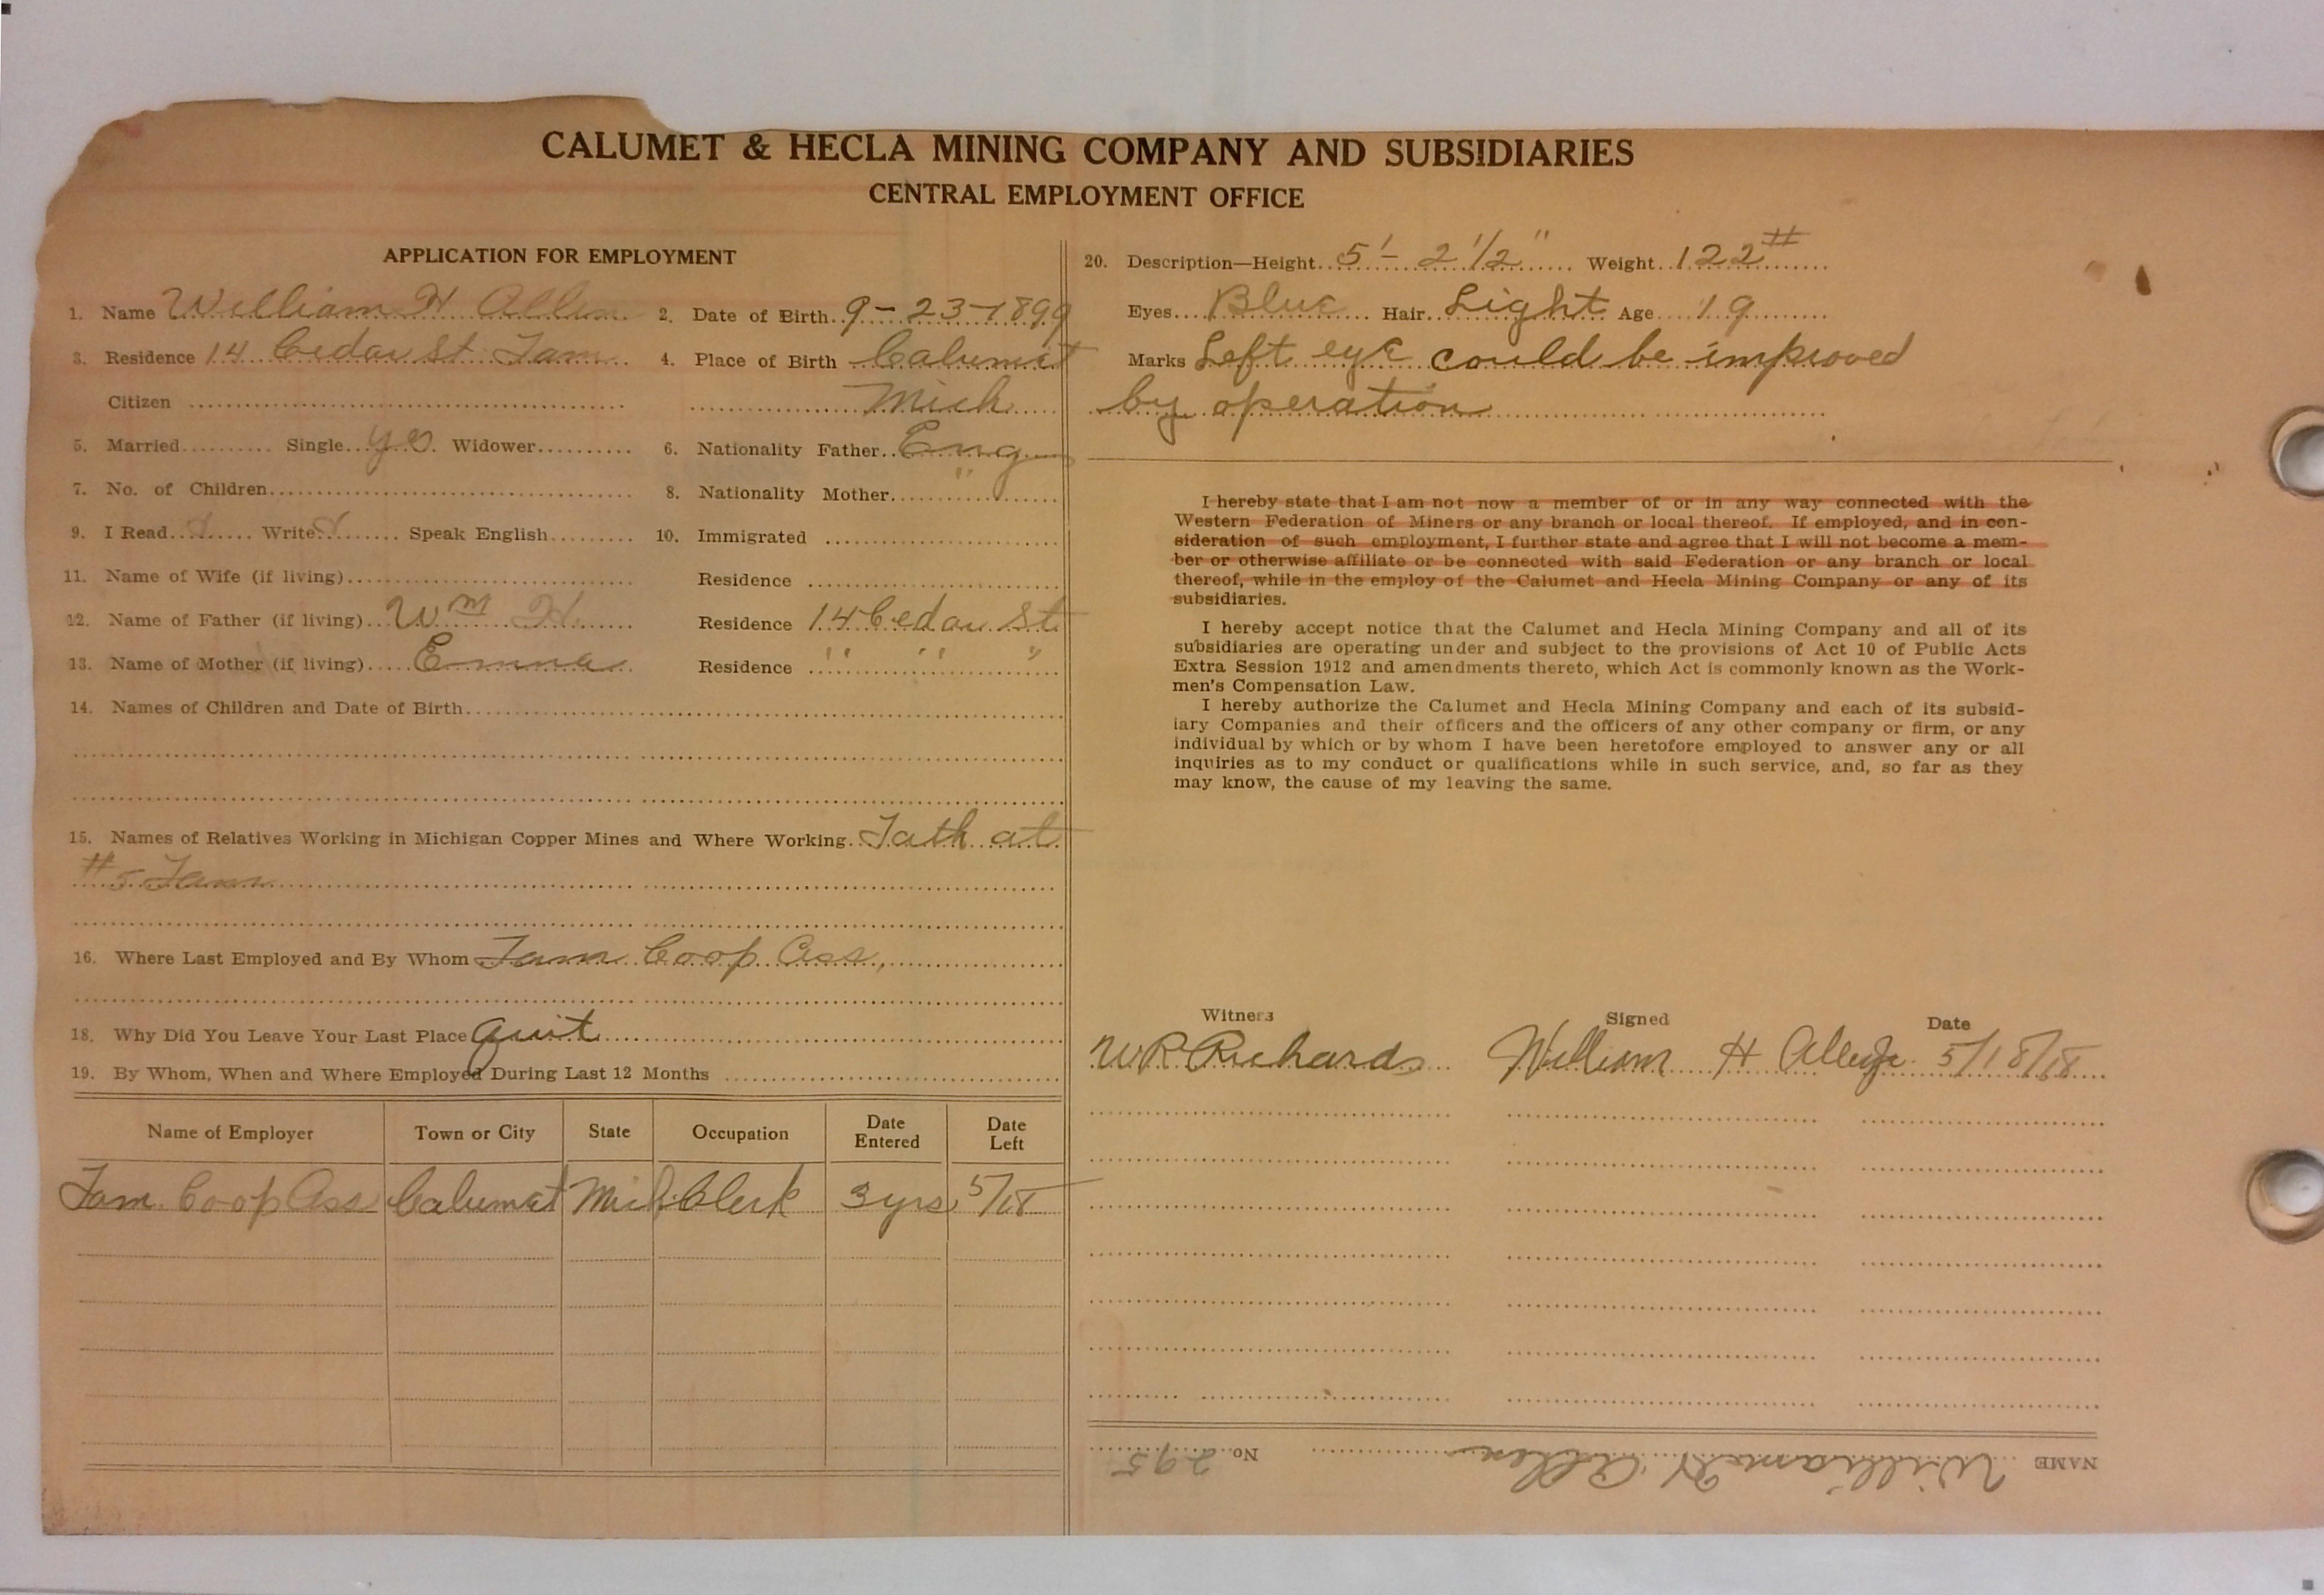 CALUMET & HECLA MINING COMPANY AND SUBSIDIARIES
CENTRAL EMPLOYMENT OFFICE
APPLICATION FOR EMPLOYMENT
1. Name William H Allen 2. Date of Birth 9-23-1899
3. Residence 14 Cedar St Tam 4. Place of Birth Calumet
Citizen Mich
5. Married Single yes Widower 6. Nationality Father Eng
7. No. of Children 8. Nationality Mother "
9. I Read Write Speak English 10. Immigrated
11. Name of Wife (if living) Residence
12. Name of Father (if living) Wm H. Residence 14 Cedar St
13. Name of Mother (if living) Emma Residence " " "
14. Names of Children and Date of Birth
15. Names of Relatives Working in Michigan Copper Mines and Where Working. Fath at
#5 Tam
16. Where Last Employed and By Whom Tam Coop Ass,
18. Why Did You Leave Your Last Place quit
19. By Whom, When and Where Employed During Last 12 Months
Name of Employer Town or City State Occupation Date Entered Date Left
Tam. Coop Ass Calumet Mich Clerk 3 yrs 5/18
20. Description—Height 5' - 2 1/2" Weight 122#
Eyes Blue Hair Light Age 19
Marks Left eye could be improved
by operation
I hereby state that I am not now a member of or in any way connected with the
Western Federation of Miners or any branch or local thereof. If employed, and in con-
sideration of such employment, I further state and agree that I will not become a mem-
ber or otherwise affiliate or be connected with said Federation or any branch or local
thereof, while in the employ of the Calumet and Hecla Mining Company or any of its
subsidiaries.
I hereby accept notice that the Calumet and Hecla Mining Company and all of its
subsidiaries are operating under and subject to the provisions of Act 10 of Public Acts
Extra Session 1912 and amendments thereto, which Act is commonly known as the Work-
men's Compensation Law.
I hereby authorize the Calumet and Hecla Mining Company and each of its subsid-
iary Companies and their officers and the officers of any other company or firm, or any
individual by which or by whom I have been heretofore employed to answer any or all
inquiries as to my conduct or qualifications while in such service, and, so far as they
may know, the cause of my leaving the same.
Witness Signed Date
W R Richards William H Allen Jr 5/18/18
NAME William H Allen No. 295